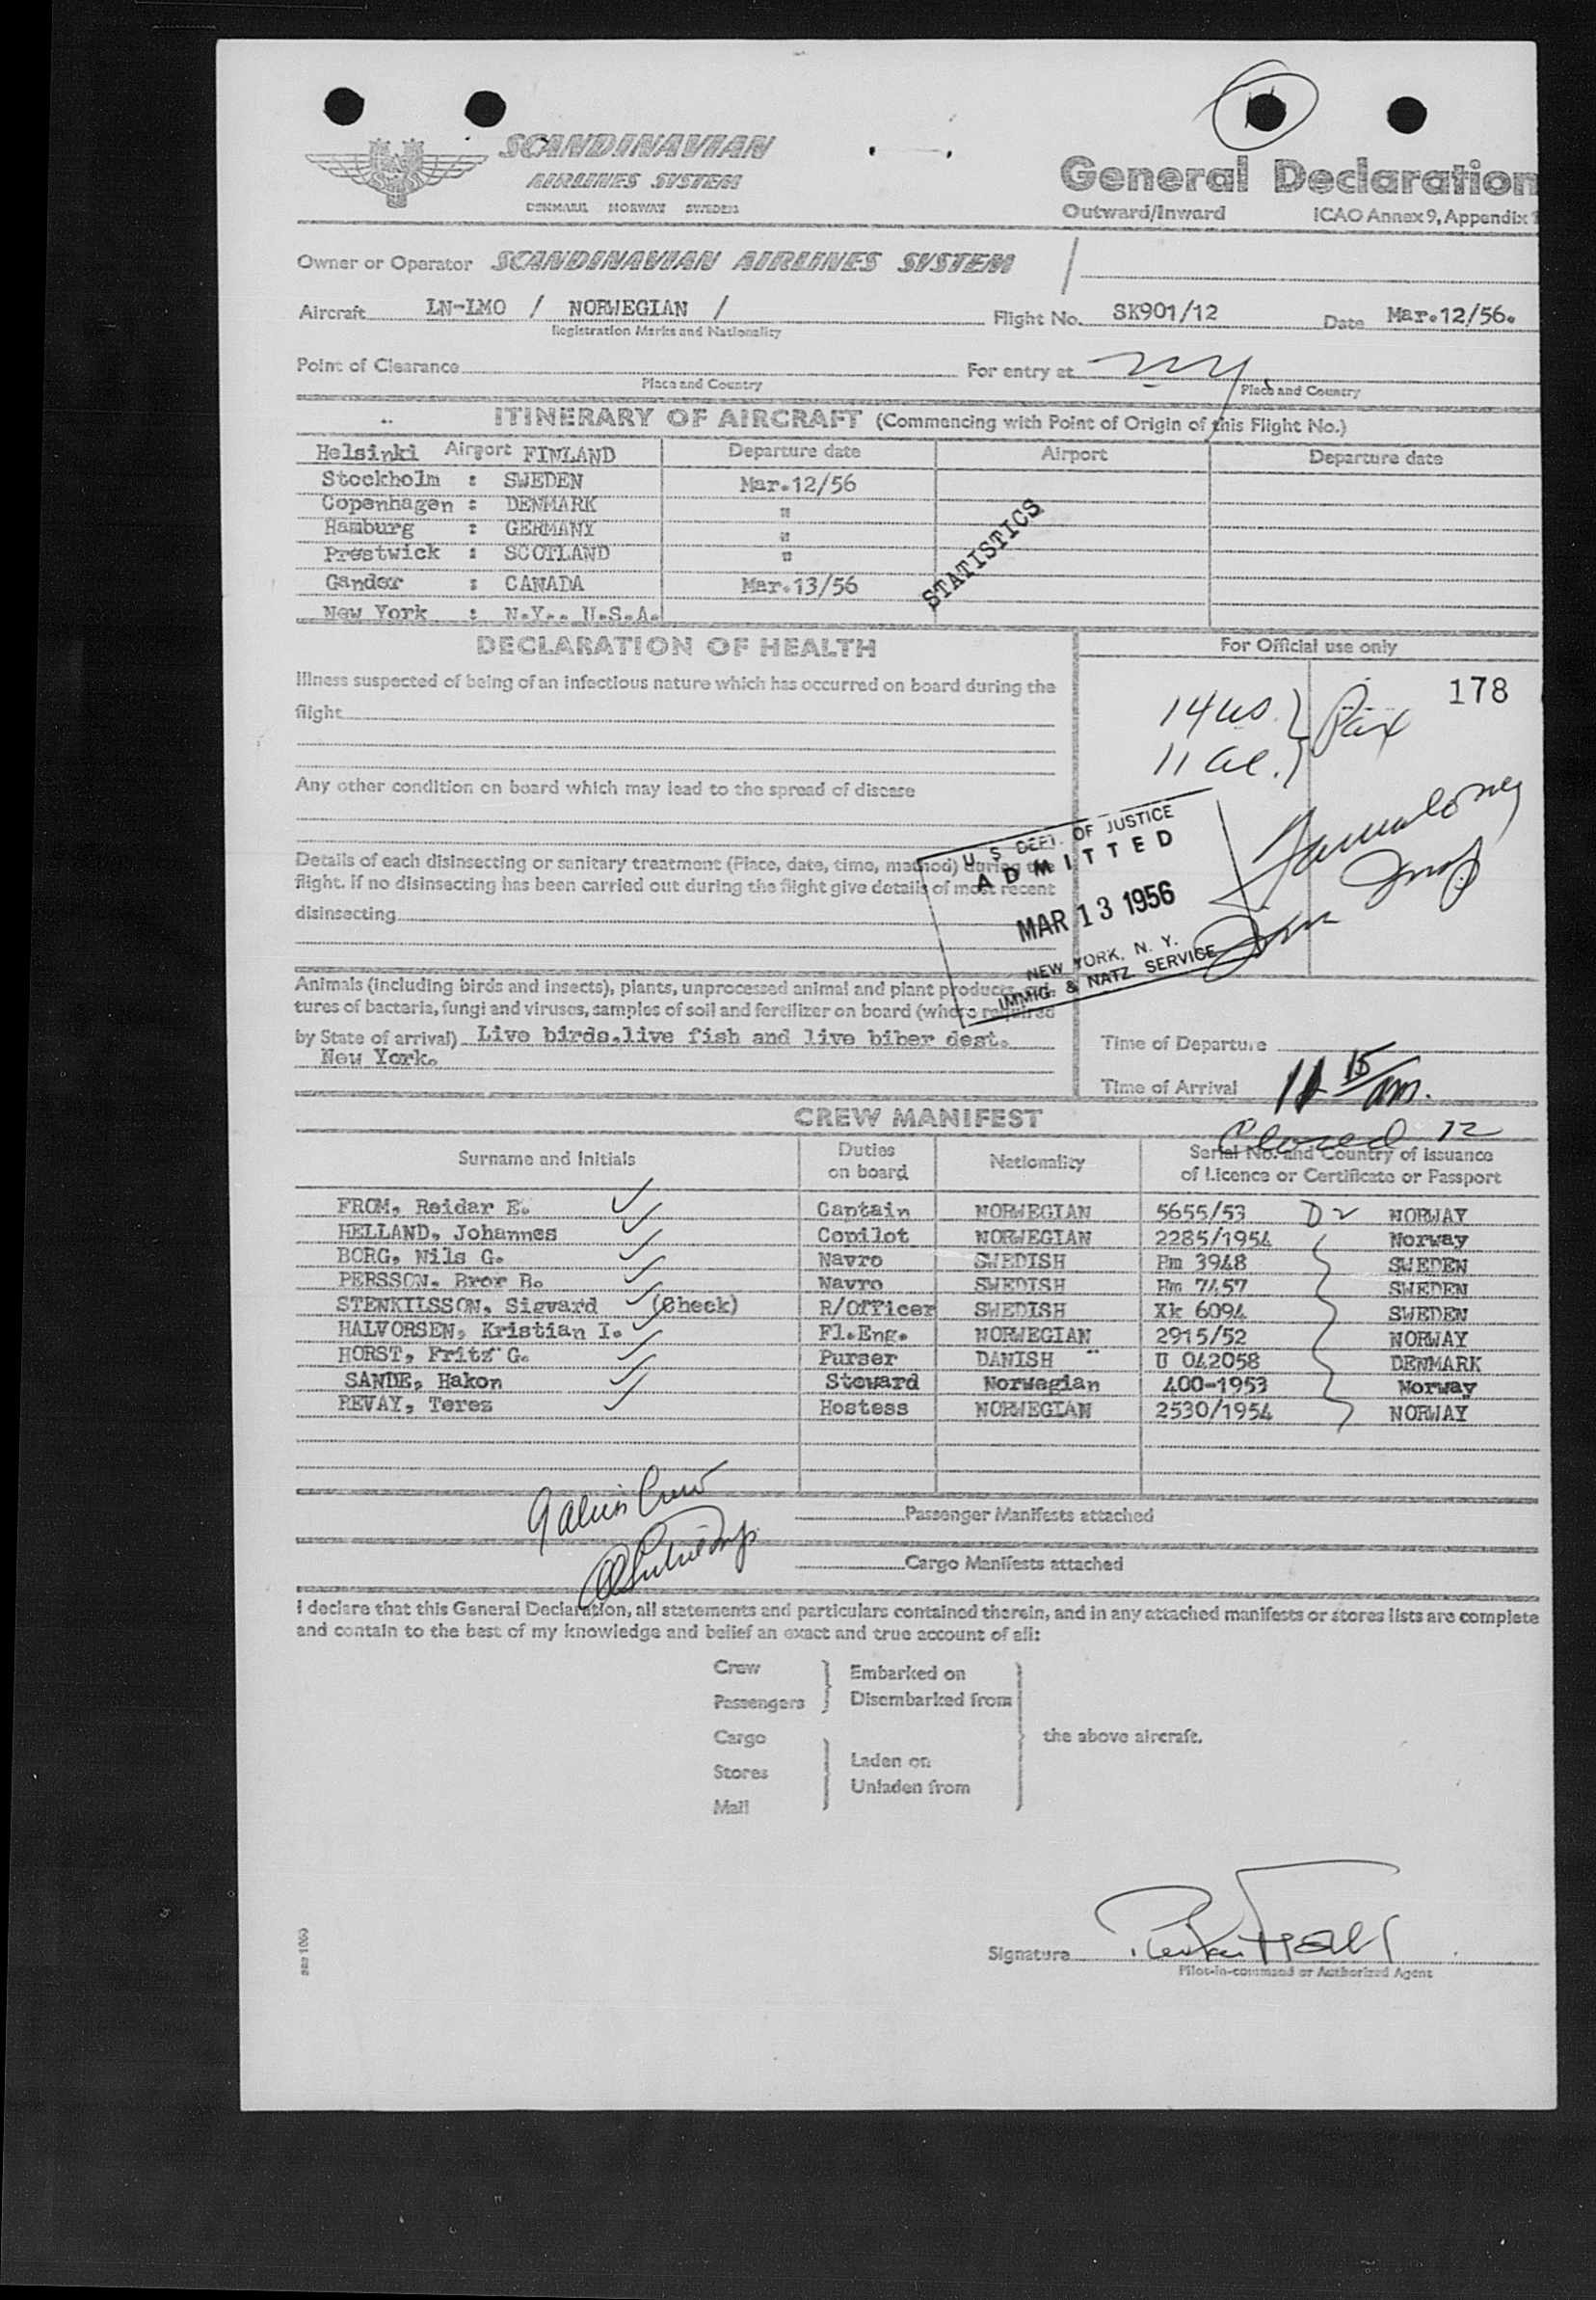 SCANDINAVIAN
AIRLINES SYSTEM
DENMARK NORWAY SWEDEN
General Declaration
Outward/Inward ICAO Annex 9, Appendix 1
Owner or Operator SCANDINAVIAN AIRLINES SYSTEM /
Aircraft LN-LMO / NORWEGIAN / Flight No. SK901/12 Date Mar.12/56.
Registration Marks and Nationality
Point of Clearance For entry at NY
Place and Country Place and Country
ITINERARY OF AIRCRAFT (Commencing with Point of Origin of this Flight No.)
Helsinki Airport FINLAND Departure date Airport Departure date
Stockholm : SWEDEN Mar.12/56
Copenhagen : DENMARK "
Hamburg : GERMANY "
Prestwick : SCOTLAND "
Gander : CANADA Mar.13/56
New York : N.Y., U.S.A.
STATISTICS
DECLARATION OF HEALTH
For Official use only
Illness suspected of being of an infectious nature which has occurred on board during the
flight
Any other condition on board which may lead to the spread of disease
Details of each disinsecting or sanitary treatment (Place, date, time, method) during the
flight. If no disinsecting has been carried out during the flight give details of most recent
disinsecting
178
14 US } Pax
11 al. }
U. S. DEPT. OF JUSTICE
ADMITTED
MAR 13 1956
NEW YORK, N. Y.
IMMIG. & NATZ. SERVICE
Animals (including birds and insects), plants, unprocessed animal and plant products,
tures of bacteria, fungi and viruses, samples of soil and fertilizer on board (where required
by State of arrival) Live birds,live fish and live biber dest.
New York.
Time of Departure
Time of Arrival 11 15 am.
Closed 12
CREW MANIFEST
Surname and Initials Duties on board Nationality Serial No. and Country of Issuance
of Licence or Certificate or Passport
FROM, Reidar E. Captain NORWEGIAN 5655/53 D2 NORWAY
HELLAND, Johannes Copilot NORWEGIAN 2285/1954 Norway
BORG, Nils G. Navro SWEDISH Hm 3948 SWEDEN
PERSSON, Bror B. Navro SWEDISH Hm 7457 SWEDEN
STENKILSSON, Sigvard (Check) R/Officer SWEDISH Xk 6094 SWEDEN
HALVORSEN, Kristian I. Fl.Eng. NORWEGIAN 2915/52 NORWAY
HORST, Fritz G. Purser DANISH U 042058 DENMARK
SANDE, Hakon Steward Norwegian 400-1953 Norway
REVAY, Terez Hostess NORWEGIAN 2530/1954 NORWAY
9 alien Crew
Passenger Manifests attached
Cargo Manifests attached
I declare that this General Declaration, all statements and particulars contained therein, and in any attached manifests or stores lists are complete
and contain to the best of my knowledge and belief an exact and true account of all:
Crew
Passengers
Embarked on
Disembarked from
Cargo
Stores
Mail
Laden on
Unladen from
the above aircraft.
Signature Reidar From
Pilot-in-command or Authorized Agent
sas 1060